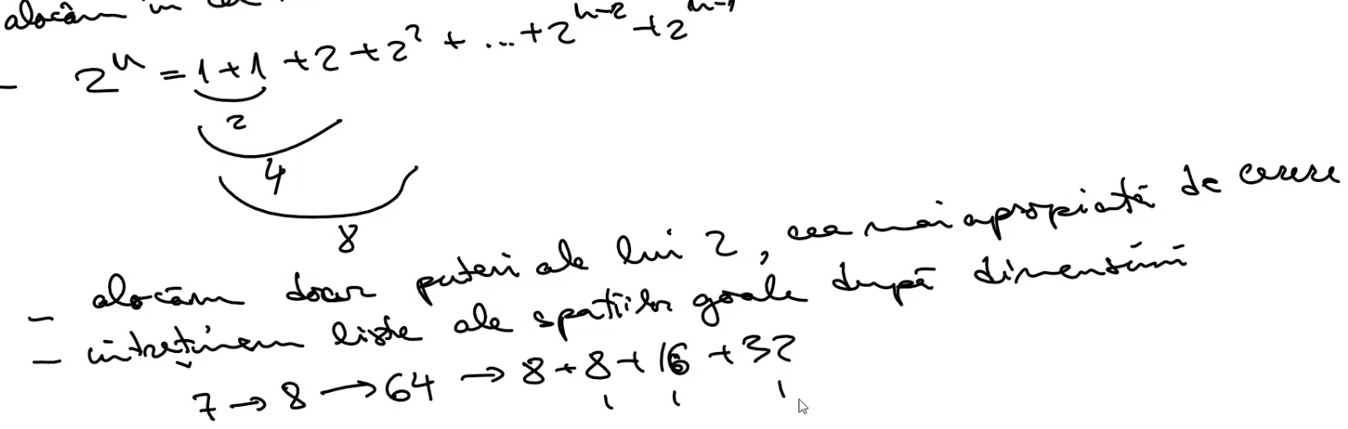 alocăm în cea
- 2^n = 1 + 1 + 2 + 2^2 + ... + 2^{n-2} + 2^{n-1}
2
4
8
- alocăm doar puteri ale lui 2, cea mai apropiată de cerere
- întreținem liste ale spațiilor goale după dimensiuni
7 → 8 → 64 → 8 + 8 + 16 + 32